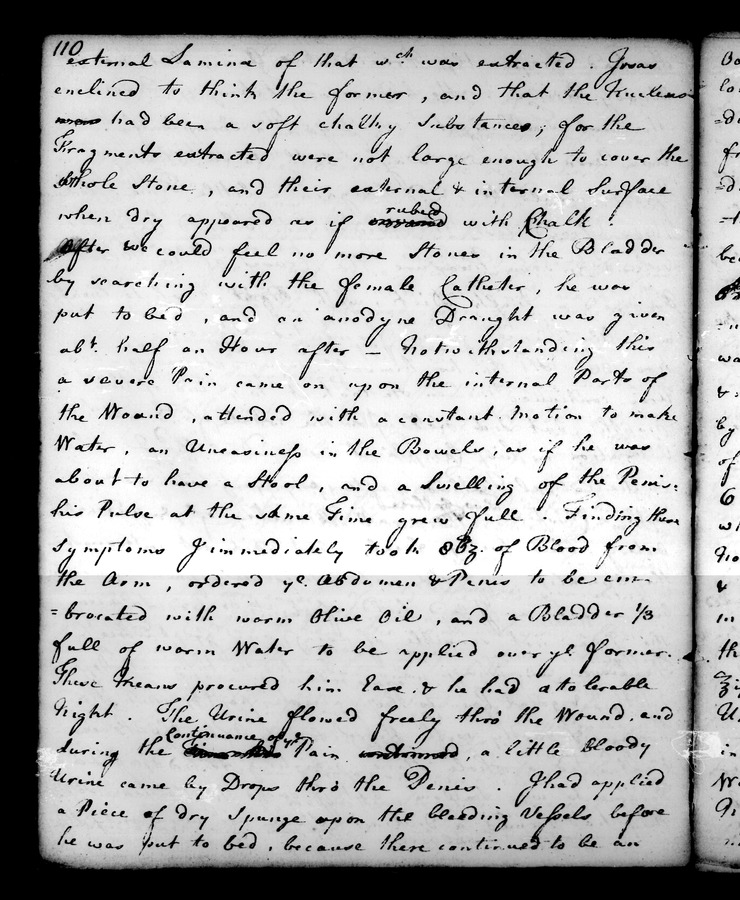 110
external Lamina of that wch. was extracted. I was
enclined to think the former, and that the Nucleus
had been a soft chalky substance; for the
Fragments extracted were not large enough to cover the
whole Stone, and their external & internal Surface
when dry appeared as if rubed with Chalk.
After we could feel no more Stones in the Bladder
by searching with the female Catheter, he was
put to bed, and an anodyne Draught was given
abt. half an Hour after – Notwithstanding this
a severe Pain came on upon the internal Parts of
the Wound, attended with a constant motion to make
Water, an Uneasiness in the Bowels, as if he was
about to have a Stool, and a Swelling of the Penis:
his Pulse at the same Time grew full. Finding these
symptoms I immediately took of Blood from
the Arm, ordered ye. Abdomen & Penis to be em-
=brocated with warm Olive Oil, and a Bladder 1/3
full of warm Water to be applied over ye former.
These Means procured him Ease & he had a tolerable
Night. The Urine flowed freely thro' the Wound, and
during the Continuance of ye Pain, a little bloody
Urine came by Drops thro' the Penis. I had applied
a Piece of dry Spunge upon the bleeding Vessels before
he was put to bed, because there continued to be an